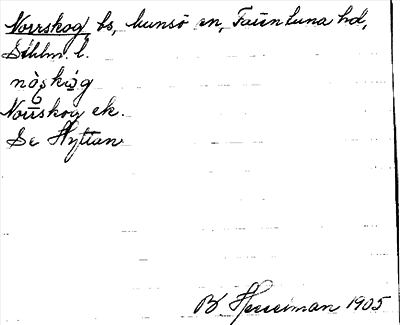 Norrskog bs, Munsö sn, Färentuna hd,
Sthlm. l.
nòskóg
Norrskog ek.
Se Hyttan
B Hesselman 1905